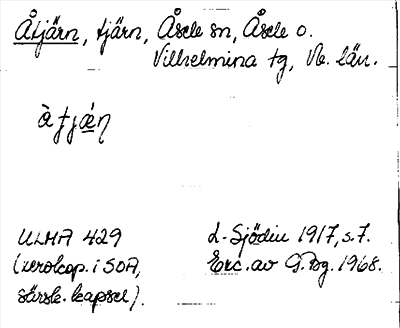 Åtjärn, tjärn, Åsele sn, Åsele o.
Vilhelmina tg, Vb. län.
à tjǽn
ULMA 429
(xerokop. i SOA,
särsk. kapsel).
L. Sjödin 1917, s. 7.
Exc. av G. Bg. 1968.